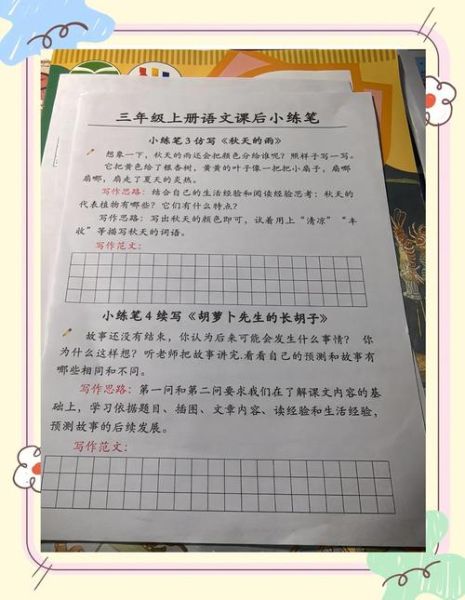 三年级上册语文课后小练笔
小练笔3 仿写《秋天的雨》
想象一下，秋天的雨还会把颜色分给谁呢？照样子写一写。
它把黄色给了银杏树，黄黄的叶子像一把把小扇子，扇哪
扇哪，扇走了夏天的炎热。
写作思路：结合自己的生活经验和阅读经验思考：秋天的
代表植物有哪些？它们有什么特点？
写作思路：写出秋天的颜色即可，试着用上“清凉”“丰
收”等描写秋天的词语。
写作范文：
小练笔4 续写《胡萝卜先生的长胡子》
故事还没有结束，你认为后来可能会发生什么事情？你
为什么这样想？听老师把故事讲完.看看自己的预测和故事有
哪些相同和不同。
写作思路：第一问和第二问要求我们在了解课文内容的基
础上，学习依据题目、插图、文章内容、读经验和生活经验，
预测故事的后续发展。
写作范文：